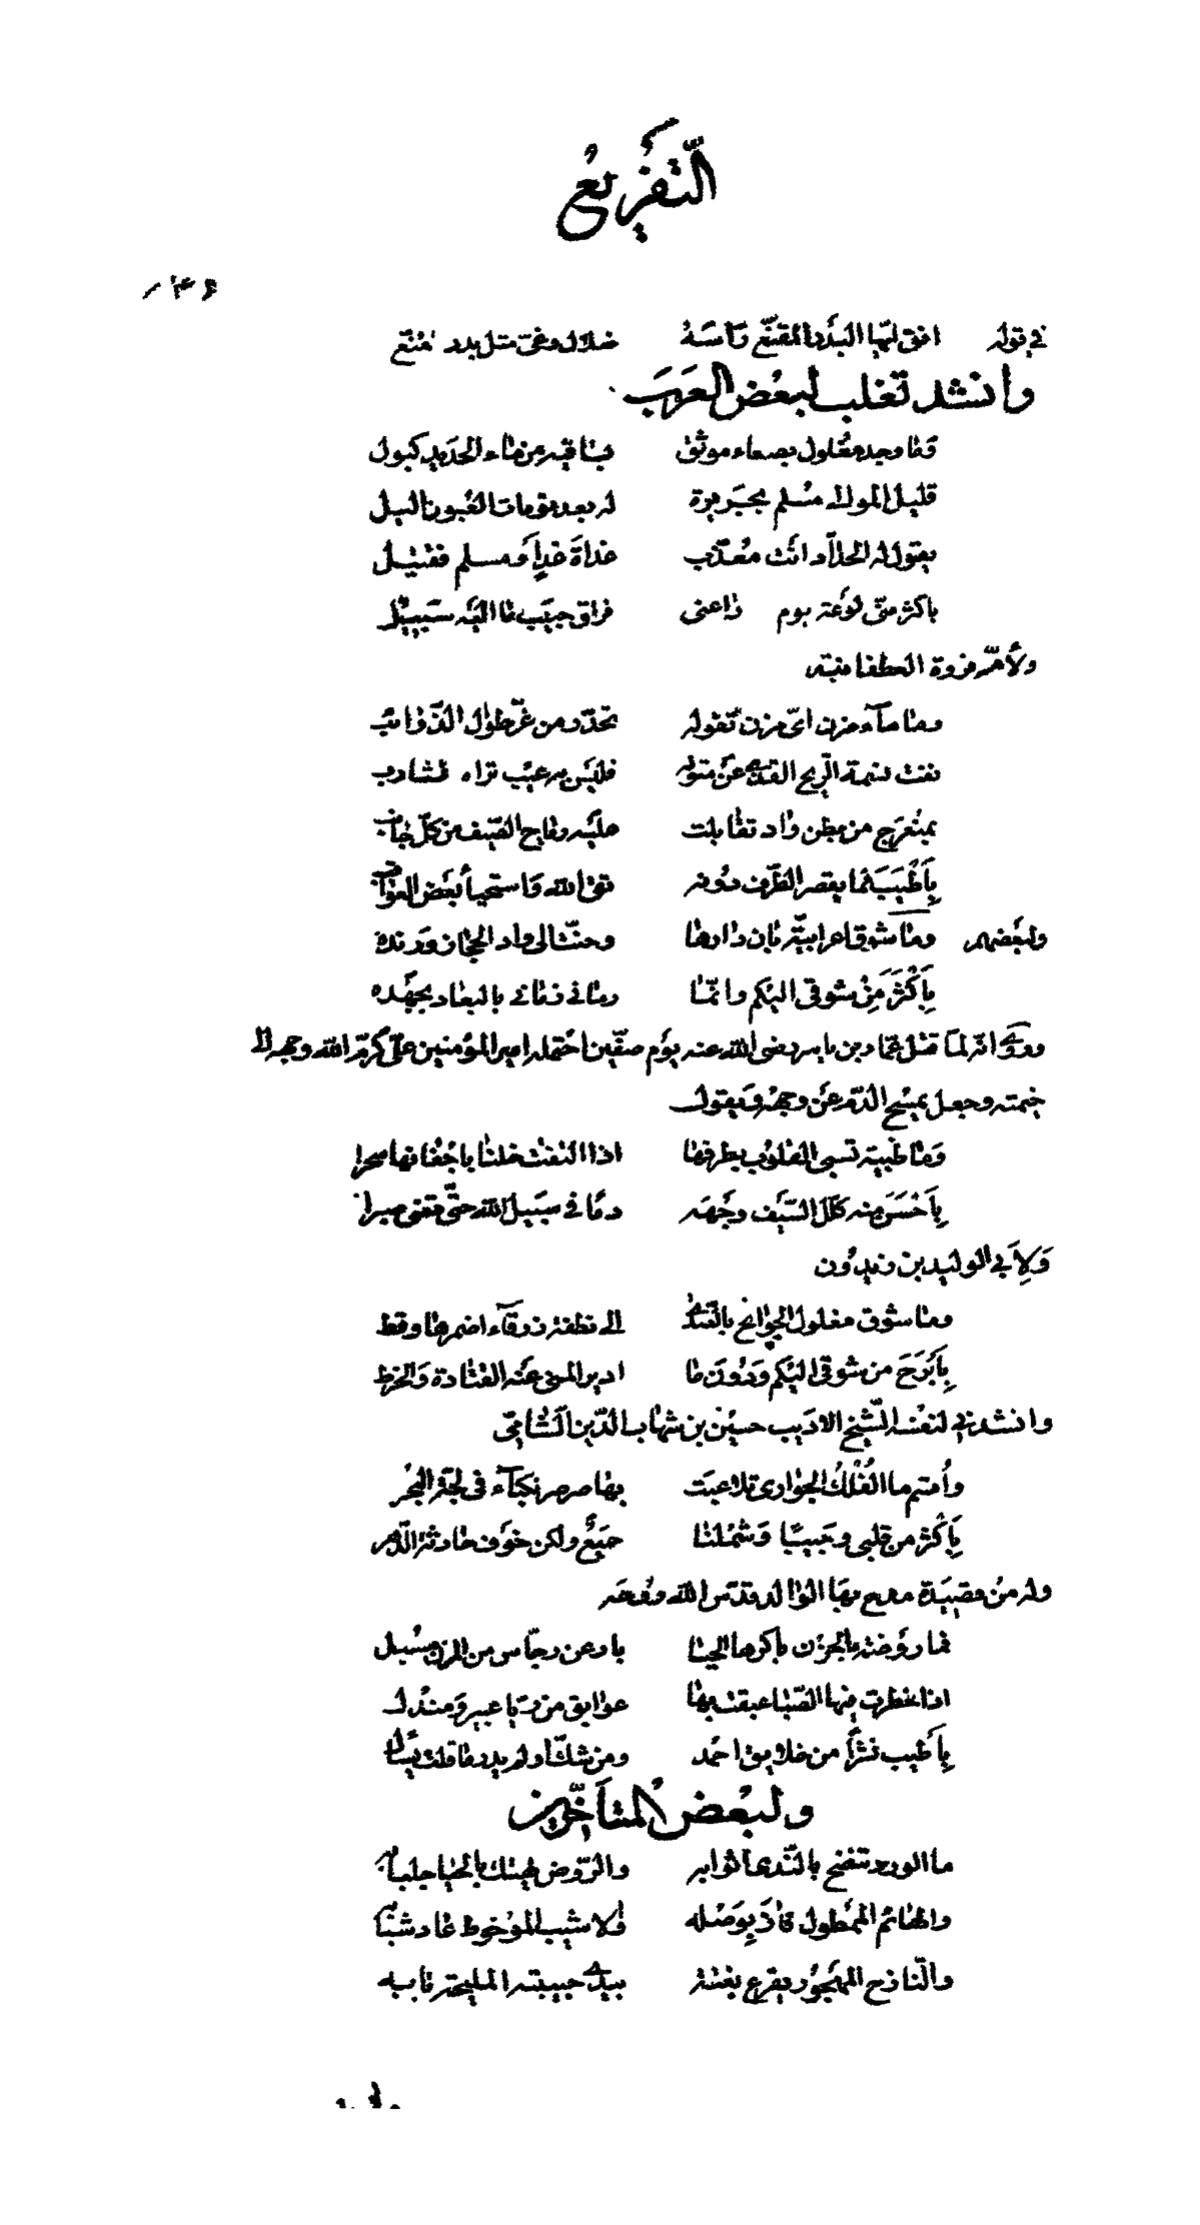 التفريع
في قوله افق انما البدر المقنع رأسه ضلال وغي مثل بدر مقنع
وانشد تغلب لبعض العرب
فما وجد مغلول بصنعاء موثق بساقيه من ماء الحديد كبول
قليل الموالي مسلم بجريرة له بعد نومات العيون اليل
يقول له الحداد انت معذب غداة غد او مسلم فقتيل
باكثر مني لوعة يوم راعني فراق حبيب ما اليه سبيل
ولأم فروة الغطفانية
وما ماء مزن اي مزن تقوله تحدر من غر طوال الذوائب
نفت نسمة الريح القذى عن متونه فليس به عيب تراه لشارب
بمنعرج من بطن واد تقابلت عليه رياح الصيف من كل جانب
بأطيب مما يقصر الطرف دونه تقى الله واستحياء بعض العواقب
ولبعضهم وما شوق اعرابية بان دارها وحنت الى واد الحجاز ورنده
بأكثر من شوقي اليكم وانما رماني زماني بالبعاد بجهده
وروي انه لما قتل عمار بن ياسر رضي الله عنه يوم صفين احتمله امير المؤمنين علي كرم الله وجهه الى
خيمته وجعل يمسح الدم عن وجهه ويقول
وما ظبية تسبي القلوب بطرفها اذا التفتت خلنا باجفانها سحرا
بأحسن منه كلل السيف وجهه دما في سبيل الله حتى قضى صبرا
ولأبي الوليد بن زيدون
وما شوق مغلول الجوانح بالصدى الى نطفة زرقاء اضمرها وقط
بأبرح من شوقي اليكم ودون ما ادير المنى عنه القتادة والخرط
وانشدني لنفسه الشيخ الاديب حسين بن شهاب الدين الشامي
وأقسم ما الفلك الجواري تلاعبت بها صرصر نكباء في لجة البحر
بأكثر من قلبي وجيبا وشملنا جميع ولكن خوف حادثة الدهر
وله من قصيدة مدح بها الوالد قدس الله روحه
فما روضة بالحزن باكرها الحيا بارعن رجاس من المزن مسبل
اذا خطرت فيها الصبا عبقت بها عوابق من ريا عبير ومندل
بأطيب نشرا من خلايق احمد ومن شك او لم يدر ما قلت يسأل
ولبعض المتأخرين
ما الورد تنفح بالندى اثوابه والروض يمسك بالحيا جلبابه
والهائم الممطول فاز بوصله والاشيب الموخوط عاد شبابه
والنازح المهجور يقرع بغتة بيدي حبيبته المليحة بابه